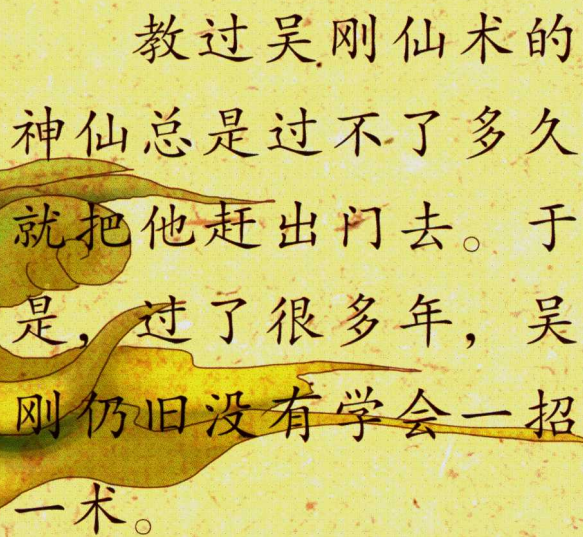 教过吴刚仙术的
神仙总是过不了多久
就把他赶出门去。于
是，过了很多年，吴
刚仍旧没有学会一招
一术。